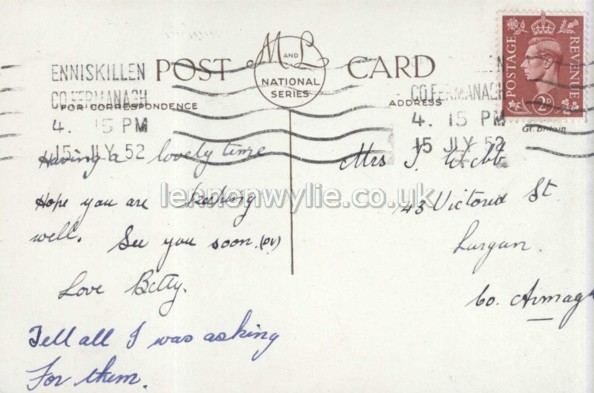 POST CARD
M AND L
NATIONAL
SERIES
FOR CORRESPONDENCE
ADDRESS
ENNISKILLEN
CO.FERMANAGH
4. 15 PM
15 JLY 52
CO.FERMANAGH
4. 15 PM
15 JLY 52
POSTAGE
REVENUE
2D
Gt. Britain
Having a lovely time
Hope you are keeping
well. See you soon. (DV)
Love Betty.
Tell all I was asking
For them.
Mrs J. Webb
43 Victoria St.
Lurgan.
Co. Armagh
lennonwylie.co.uk